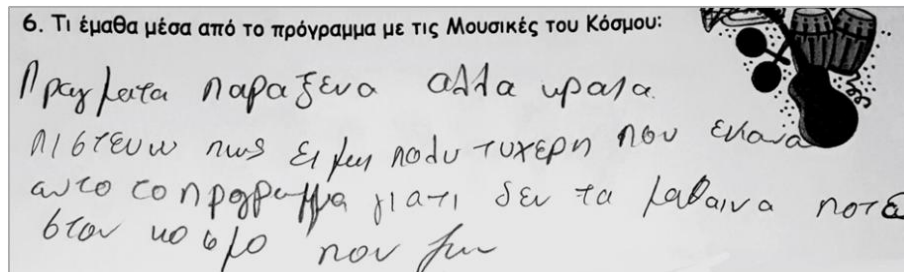 6. Τι έμαθα μέσα από το πρόγραμμα με τις Μουσικές του Κόσμου:
Πραγματα παραξενα αλλα
πιστευω πως ειμαι πολυ τυχερη που εκανα
αυτο το προγραμμα γιατι δεν τα μαθαινα ποτε
στον κοσμο που ζω